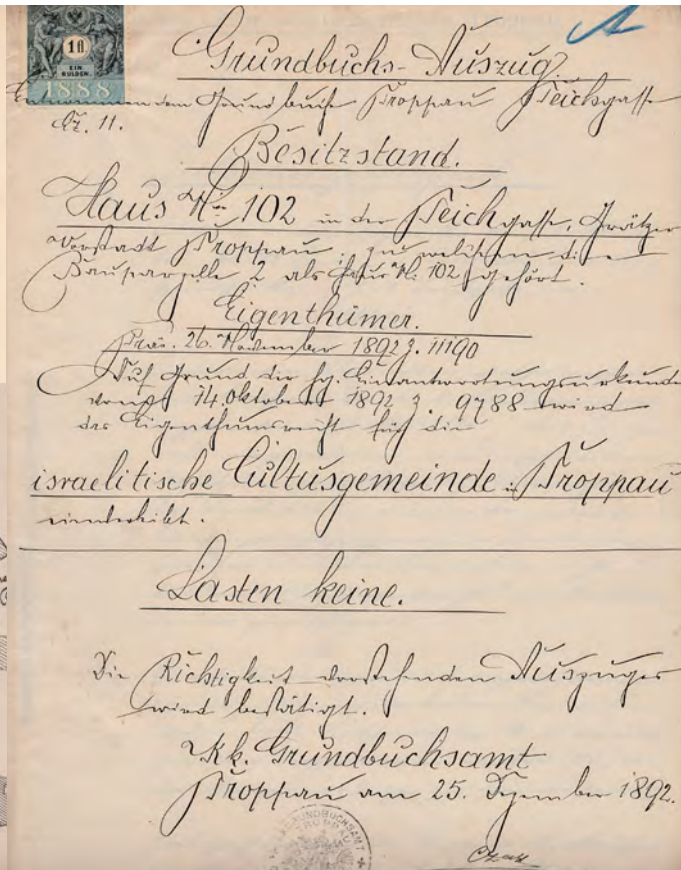 1 fl
EIN
GULDEN.
1888
Grundbuchs-Auszug.
Entnommen dem Grundbuche Troppau Teichgasse
Ez. 11.
Besitzstand.
Haus No 102 in der Teichgasse, Grätzer
Vorstadt Troppau, zu welchem die
Bauparzelle 2 als Haus N. 102 gehört.
Eigenthümer.
Präs. 26. November 1892 z. 11190
Auf Grund der hg. Einantwortungsurkunde
vom 14. Oktober 1892 z. 9788 wird
das Eigenthumsrecht für die
israelitische Cultusgemeinde in Troppau
einverleibt.
Lasten keine.
Die Richtigkeit vorstehenden Auszuges
wird bestätigt.
K.k. Grundbuchsamt
Troppau am 25. Dezember 1892.
GRUNDBUCHSAMT
TROPPAU